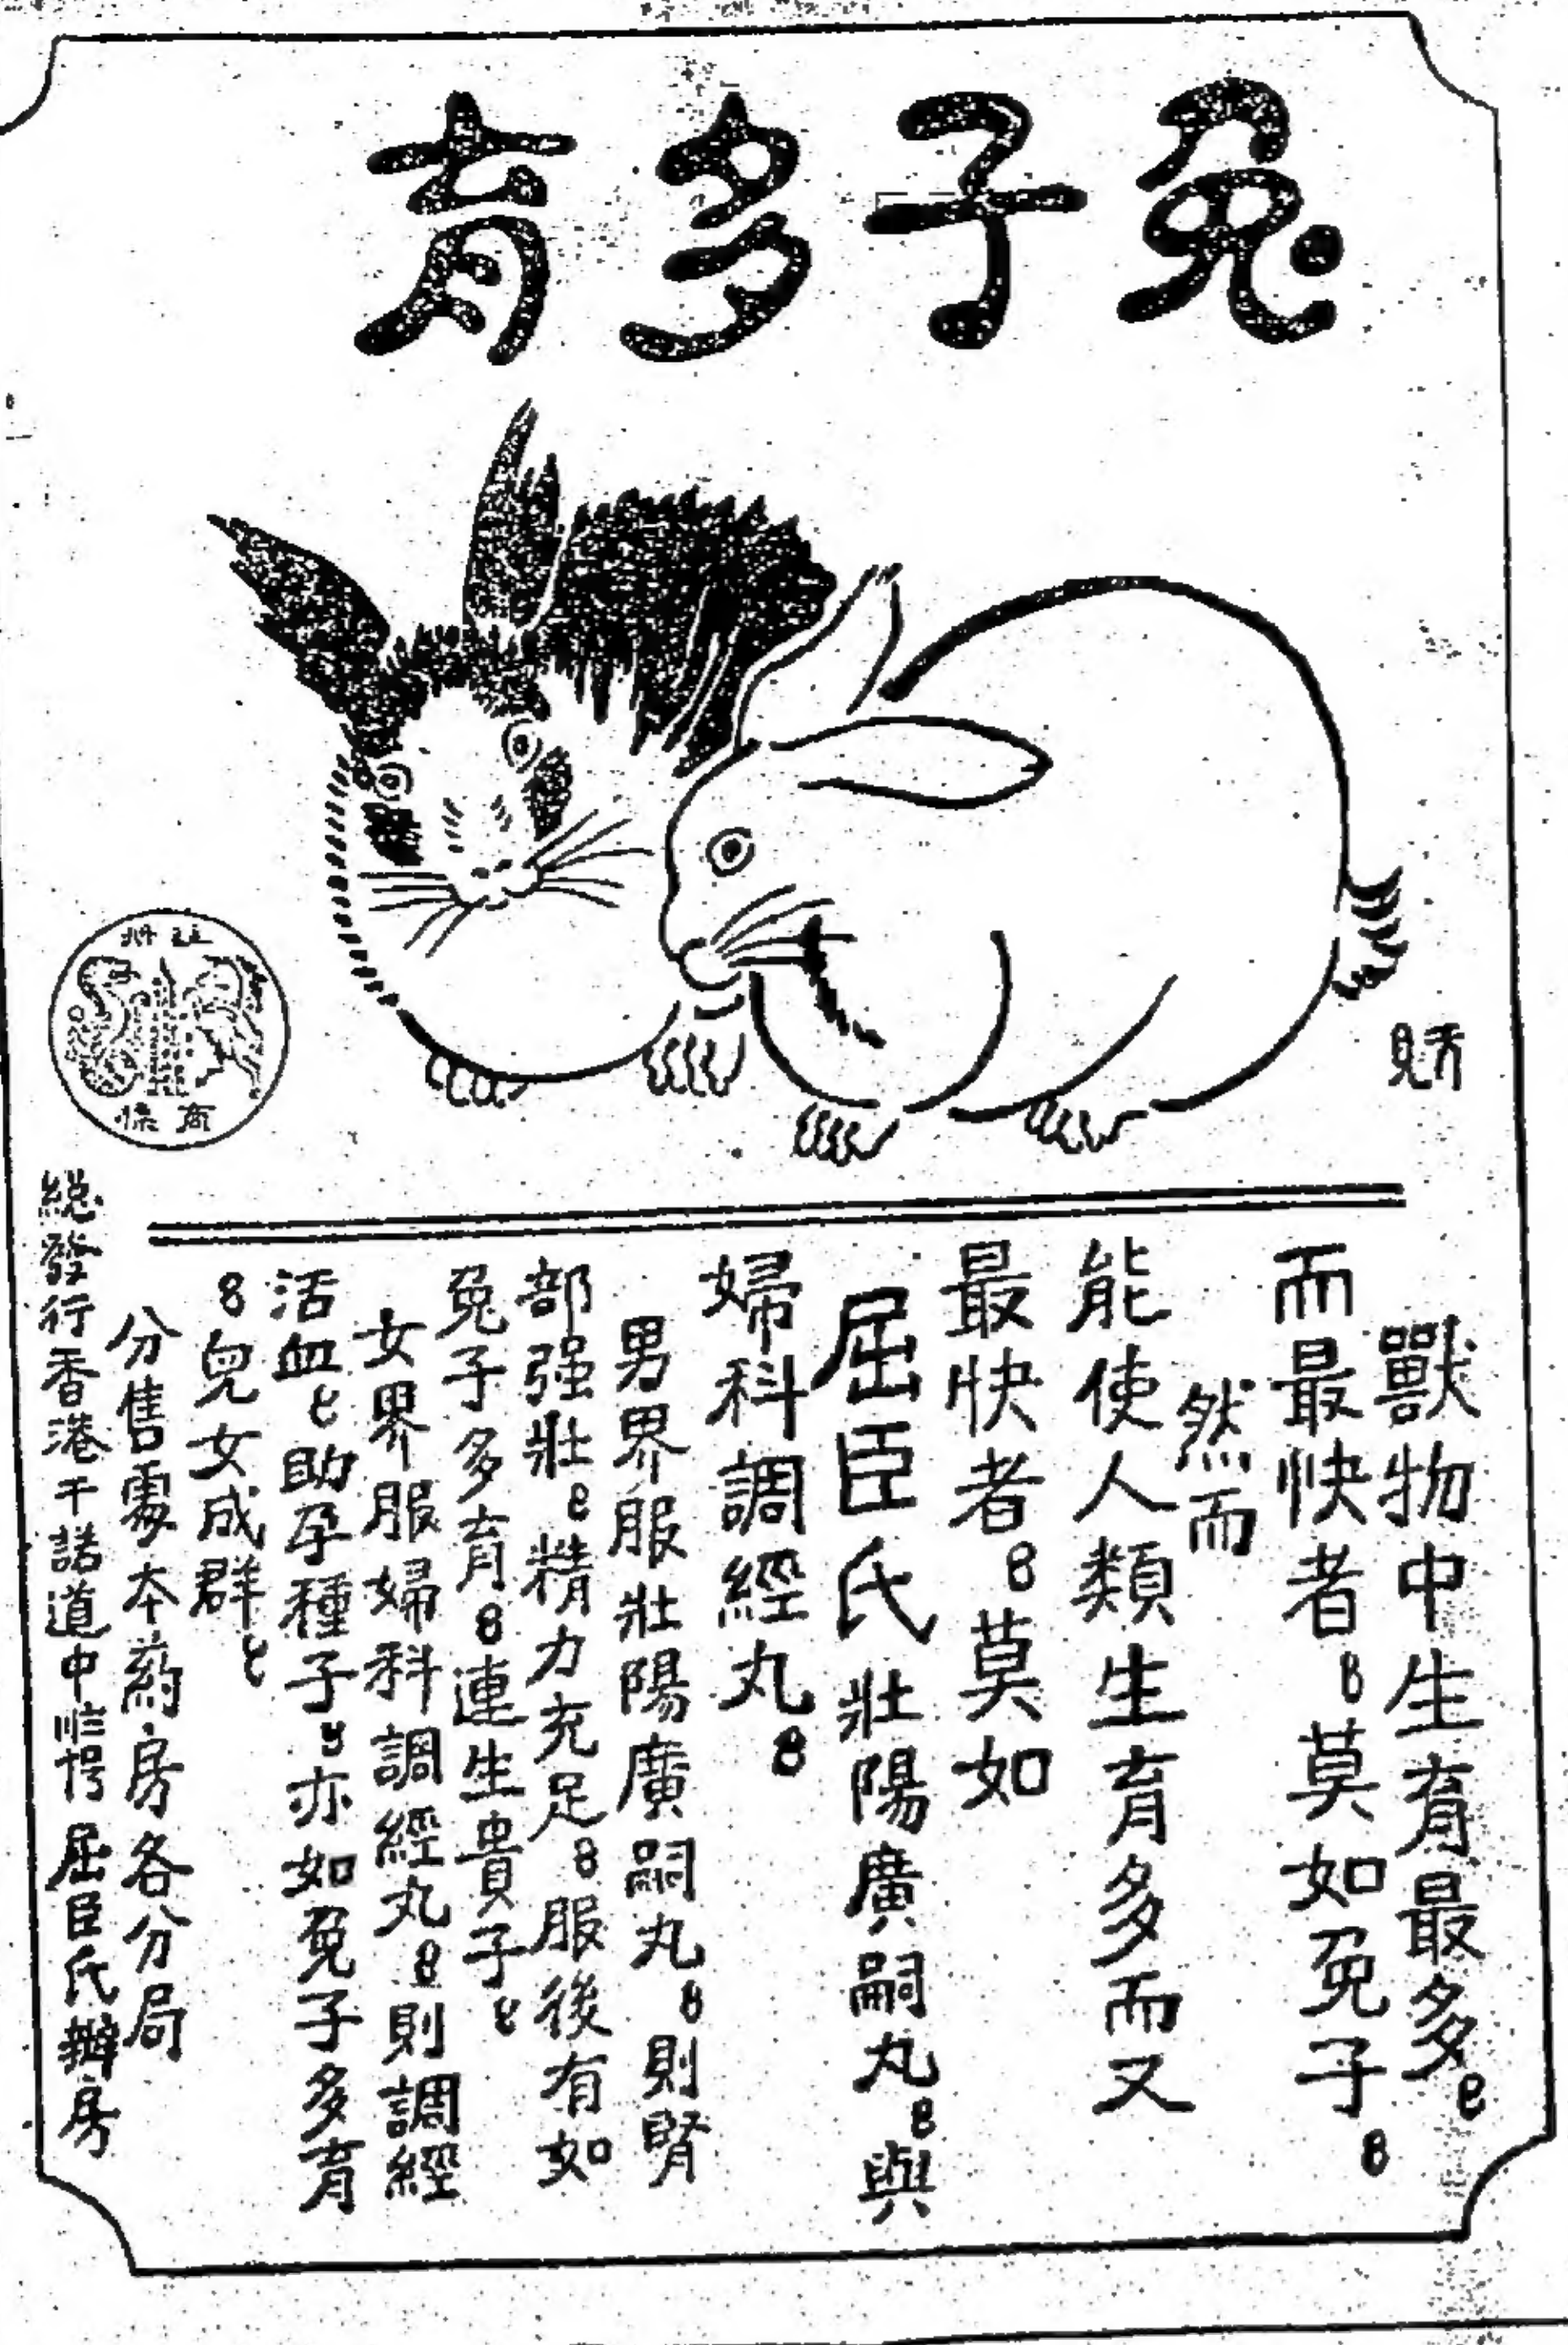 兔子多育
獸物中生育最多
而最快者莫如兔子
然而
能使人類生育多而又
最快者莫如
屈臣氏壯陽廣嗣丸與
婦科調經丸
男界服壯陽廣嗣丸則腎
部强壯精力充足服後有如
兔子多育連生貴子
女界服婦科調經丸則調經
活血助孕種子亦如兔子多育
兒女成群
分售處本葯房各分局
總發行香港干諾道中 屈臣氏葯房
註冊
商標